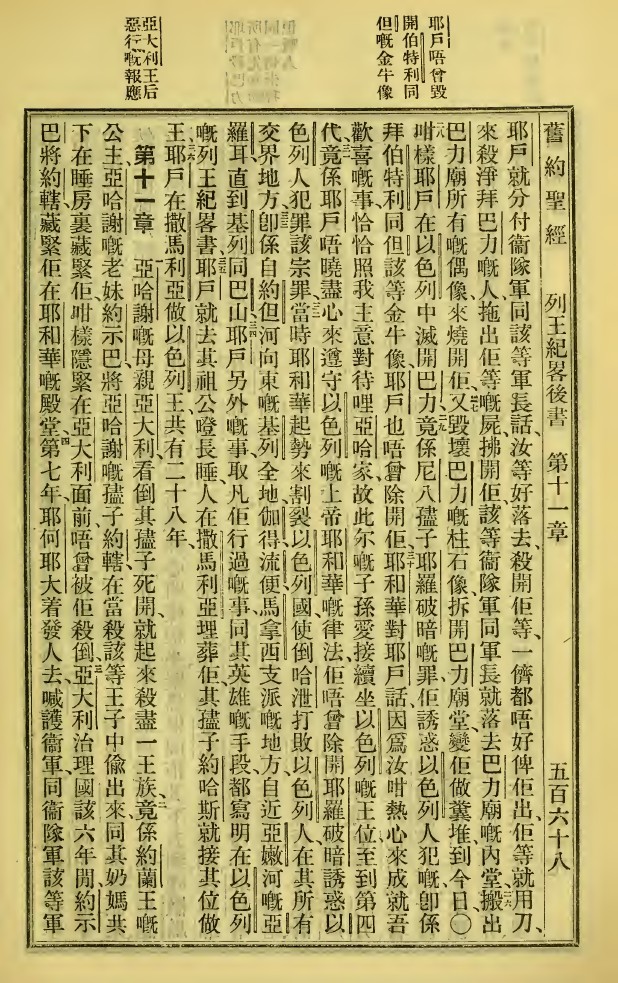 耶戶唔曾毀
開伯特利同
但嘅金牛像
亞大利王后
惡行嘅報應
舊約聖經 列王紀畧後書 第十一章 五百六十八
耶戶就分付衞隊軍同該等軍長話、汝等好落去殺開佢等、一儕都唔好俾佢出、佢等就用刀、
來殺淨拜巴力嘅人、拖出佢等嘅屍拂開佢、該等衞隊軍同軍長就落去巴力廟嘅內堂、二六搬出
巴力廟所有嘅偶像、來燒開佢、二七又毀壞巴力嘅柱石像、拆開巴力廟堂、變佢做糞堆到今日、〇
二八咁樣耶戶在以色列中滅開巴力、二九竟係尼八孻子耶羅破暗嘅罪、佢誘惑以色列人犯嘅、卽係
拜伯特利同但該等金牛像、耶戶也唔曾除開佢、三十耶和華對耶戶話、因爲汝咁熱心來成就吾
歡喜嘅事、恰恰照我主意對待哩亞哈家、故此尔嘅子孫愛接續坐以色列嘅王位、至到第四
代、三一竟係耶戶唔曉盡心來遵守以色列嘅上帝耶和華嘅律法、佢唔曾除開耶羅破暗誘惑以
色列人犯罪該宗罪、三二當時耶和華起勢來割裂以色列國、使倒哈泄打敗以色列人、在其所有
交界地方、三三卽係自約但河向東嘅基列全地、伽得流便馬拿西支派嘅地方、自近亞嫩河嘅亞
羅耳、直到基列同巴山、三四耶戶另外嘅事、取凡佢行過嘅事、同其英雄嘅手段、都寫明在以色列
嘅列王紀畧書、三五耶戶就去其祖公噔長睡、人在撒馬利亞埋葬佢、其孻子約哈斯就接其位做
王、三六耶戶在撒馬利亞做以色列王、共有二十八年、
第十一章 一亞哈謝嘅母親亞大利、看倒其孻子死開、就起來殺盡一王族、二竟係約蘭王嘅
公主、亞哈謝嘅老妹約示巴、將亞哈謝嘅孻子約轄、在當殺該等王子中偸出來、同其奶媽共
下在睡房裏藏緊佢、咁樣隱緊在亞大利面前、唔曾被佢殺倒、三亞大利治理國該六年閒、約示
巴將約轄藏緊佢在耶和華嘅殿堂、四第七年、耶何耶大着發人去喊護衞軍同衞隊軍該等軍